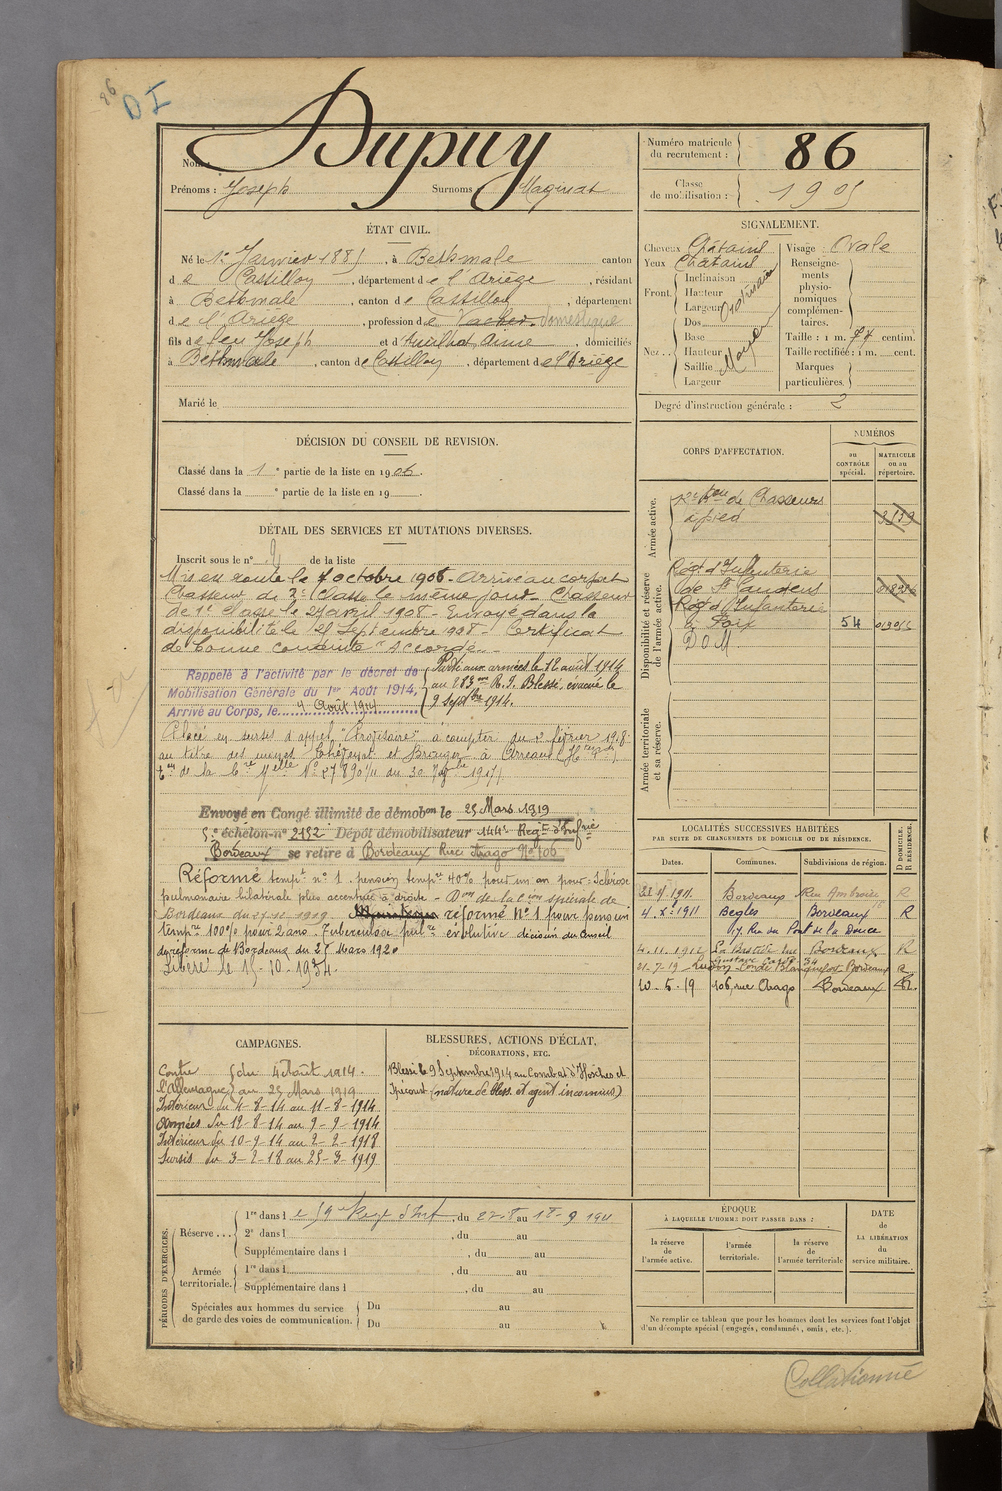 86
D I
Nom : Dupuy
Prénoms : Joseph Surnoms :
Numéro matricule du recrutement : 86
Classe de mobilisation : 1905
ÉTAT CIVIL.
Né le 1er Janvier 1885, à Bethmale canton
de Castillon, département de l'Ariège, résidant
à Bethmale, canton de Castillon, département
de l'Ariège, profession de Vacher. domestique
fils de feu Joseph et d' Anne, domiciliés
à Bethmale, canton de Castillon, département de l'Ariège
Marié le
SIGNALEMENT.
Cheveux Châtains
Yeux Châtains
Front. Inclinaison Hauteur Largeur Ordinaire
Nez... Dos Base Hauteur Saillie Largeur Moyen
Visage : Ovale
Renseignements physionomiques complémentaires.
Taille : 1 m. 74 centim.
Taille rectifiée : 1 m. cent.
Marques particulières.
Degré d'instruction générale : 2
DÉCISION DU CONSEIL DE REVISION.
Classé dans la 1e partie de la liste en 1906.
Classé dans la e partie de la liste en 19
DÉTAIL DES SERVICES ET MUTATIONS DIVERSES.
Inscrit sous le n° 9 de la liste
Mis en route le 7 octobre 1906. Arrivé au corps et
Chasseur de 2e Classe le même jour. Chasseur
de 1e Classe le 27 avril 1908. Envoyé dans la
disponibilité le 25 Septembre 1908. Certificat
de bonne conduite "Accordé".
Rappelé à l'activité par le décret de
Mobilisation Générale du 1er Août 1914,
Arrivé au Corps, le 4 Août 1914
Parti aux armées le 12 août 1914
au 283me R.I. Blessé, évacué le
9 septbre 1914.
Placé en sursis d'appel "Provisoire" à compter du 2 février 1918
au titre des usines et à Arreau
Envoyé en Congé illimité de démobon le 25 Mars 1919
5e échelon-n° 2152 Dépôt démobilisateur 144e Régt d'Infrie
Bordeaux se retire à Bordeaux Rue Arago N° 106
Réformé tempt n° 1. pension tempre 40% pour un an pour : Sclérose
pulmonaire bilatérale plus accentuée à droite - Don de la Con spéciale de
Bordeaux du 27-12-1919. réformé N° 1 pour pension
tempre 100% pour 2 ans. Tuberculose pulre évolutive décision du Conseil
de réforme de Bordeaux du 25 Mars 1920
Libéré le 15-10-1934.
CORPS D'AFFECTATION.
NUMÉROS
au CONTRÔLE spécial.
MATRICULE ou au répertoire.
Armée active.
de Chasseurs
à pied
Disponibilité et réserve de l'armée active.
Régt d'Infanterie
de St Gaudens
Régt d'Infanterie
à Foix 54
DOM
Armée territoriale et sa réserve.
LOCALITÉS SUCCESSIVES HABITÉES
PAR SUITE DE CHANGEMENTS DE DOMICILE OU DE RÉSIDENCE.
Dates. Communes. Subdivisions de région. D DOMICILE. R RÉSIDENCE.
Bordeaux R
4. Xe 1911 Bègles Bordeaux R
17, Rue du Pont de la Douce
4-11-1912 La Bastide rue Bordeaux R
21-7-19 Ludon Bordeaux R
10-5-19 106, rue Arago Bordeaux R.
CAMPAGNES.
Contre l'Allemagne du 4 Août 1914.
au 25 Mars 1919
Intérieur du 4-8-14 au 11-8-1914
Armées du 12-8-14 au 9-9-1914
Intérieur du 10-9-14 au 2-2-1918
Sursis du 3-2-18 au 25-3-1919
BLESSURES, ACTIONS D'ÉCLAT,
DÉCORATIONS, ETC.
Blessé le 9 Septembre 1914 au Combat d'Hoéville et
(nature de bless. et agent inconnus)
PÉRIODES D'EXERCICES.
Réserve... 1re dans le 59e Régt d'Inf, du 22-8 au 18-9 1911
2e dans l , du au
Supplémentaire dans l , du au
Armée territoriale. 1re dans l , du au
Supplémentaire dans l , du au
Spéciales aux hommes du service de garde des voies de communication. Du au
Du au
ÉPOQUE
À LAQUELLE L'HOMME DOIT PASSER DANS :
la réserve de l'armée active.
l'armée territoriale.
la réserve de l'armée territoriale
DATE de LA LIBÉRATION du service militaire.
Ne remplir ce tableau que pour les hommes dont les services font l'objet
d'un décompte spécial (engagés, condamnés, omis, etc.).
Collationné